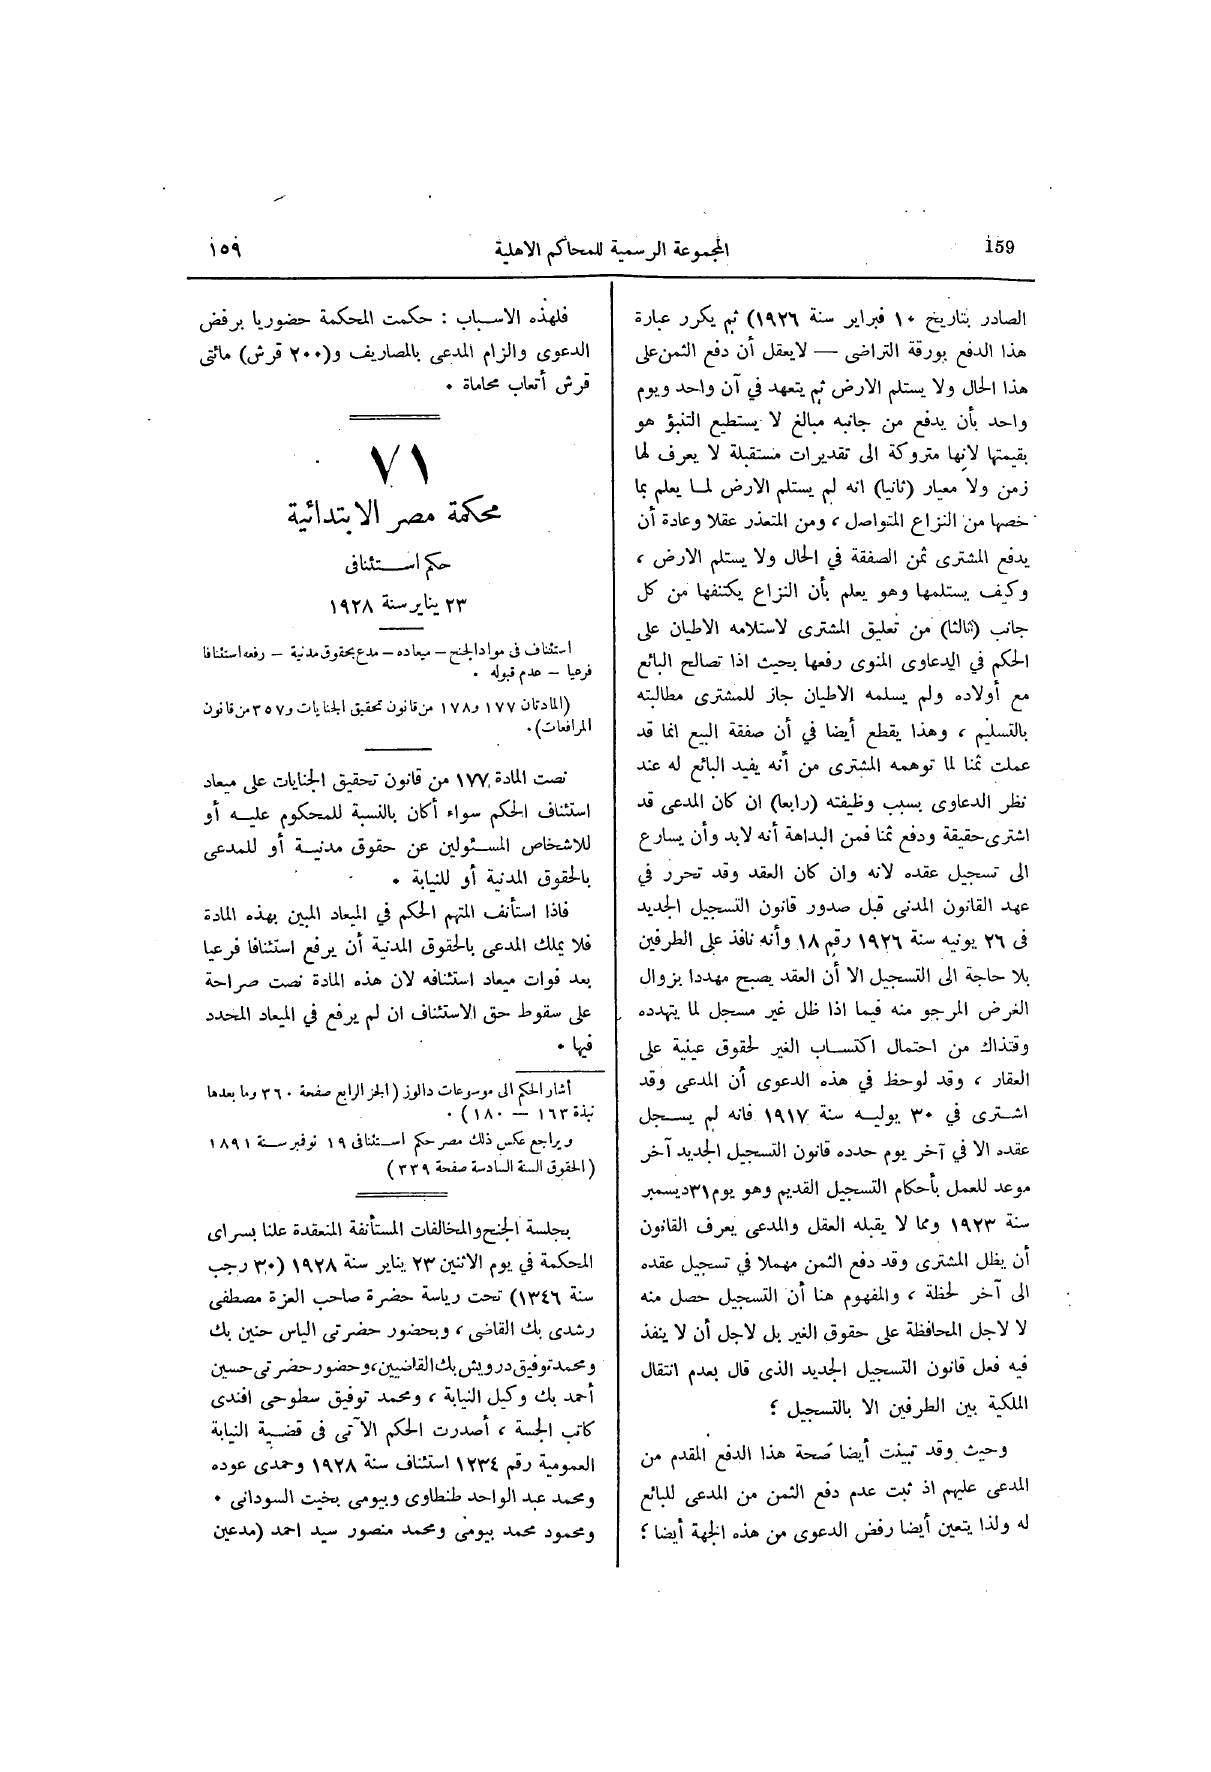 159
المجموعة الرسمية للمحاكم الاهلية
١٥٩
الصادر بتاريخ ١٠ فبراير سنة ١٩٢٦) ثم يكرر عبارة
هذا الدفع بورقة التراضى — لا يعقل أن دفع الثمن على
هذا الحال ولا يستلم الارض ثم يتعهد في آن واحد ويوم
واحد بأن يدفع من جانبه مبالغ لا يستطيع التنبؤ هو
بقيمتها لانها متروكة الى تقديرات مستقبلة لا يعرف لها
زمن ولا معيار (ثانيا) انه لم يستلم الارض لما يعلم بما
خصها من النزاع المتواصل ، ومن المتعذر عقلا وعادة أن
يدفع المشترى ثمن الصفقة في الحال ولا يستلم الارض ،
وكيف يستلمها وهو يعلم بأن النزاع يكتنفها من كل
جانب (ثالثا) من تعليق المشترى لاستلامه الاطيان على
الحكم في الدعاوى المنوى رفعها بحيث اذا تصالح البائع
مع أولاده ولم يسلمه الاطيان جاز للمشترى مطالبته
بالتسليم ، وهذا يقطع أيضا في أن صفقة البيع انما قد
عملت ثمنا لما توهمه المشترى من أنه يفيد البائع له عند
نظر الدعاوى بسبب وظيفته (رابعا) ان كان المدعى قد
اشترى حقيقة ودفع ثمنا فمن البداهة أنه لابد وأن يسارع
الى تسجيل عقده لانه وان كان العقد وقد تحرر في
عهد القانون المدنى قبل صدور قانون التسجيل الجديد
فى ٢٦ يونيه سنة ١٩٢٦ رقم ١٨ وأنه نافذ على الطرفين
بلا حاجة الى التسجيل الا أن العقد يصبح مهددا بزوال
الغرض المرجو منه فيما اذا ظل غير مسجل لما يتهدده
وقتذاك من احتمال اكتساب الغير لحقوق عينية على
العقار ، وقد لوحظ في هذه الدعوى أن المدعى وقد
اشترى في ٣٠ يوليه سنة ١٩١٧ فانه لم يسجل
عقده الا في آخر يوم حدده قانون التسجيل الجديد آخر
موعد للعمل بأحكام التسجيل القديم وهو يوم ٣١ ديسمبر
سنة ١٩٢٣ ومما لا يقبله العقل والمدعى يعرف القانون
أن يظل المشترى وقد دفع الثمن مهملا في تسجيل عقده
الى آخر لحظة ، والمفهوم هنا أن التسجيل حصل منه
لا لاجل المحافظة على حقوق الغير بل لاجل أن لا ينفذ
فيه فعل قانون التسجيل الجديد الذى قال بعدم انتقال
الملكية بين الطرفين الا بالتسجيل ؛
وحيث وقد تبينت أيضا صحة هذا الدفع المقدم من
المدعى عليهم اذ ثبت عدم دفع الثمن من المدعى للبائع
له ولذا يتعين أيضا رفض الدعوى من هذه الجهة أيضا ؛
فلهذه الاسباب : حكمت المحكمة حضوريا برفض
الدعوى والزام المدعى بالمصاريف و(٢٠٠ قرش) مائتى
قرش أتعاب محاماة .
٧١
محكمة مصر الابتدائية
حكم استئنافى
٢٣ يناير سنة ١٩٢٨
استئناف فى مواد الجنح – ميعاده – مدع بحقوق مدنية – رفعه استئنافا
فرعيا – عدم قبوله .
(المادتان ١٧٧ و١٧٨ من قانون تحقيق الجنايات و٣٥٧ من قانون
المرافعات).
نصت المادة ١٧٧ من قانون تحقيق الجنايات على ميعاد
استئناف الحكم سواء أكان بالنسبة للمحكوم عليه أو
للاشخاص المسئولين عن حقوق مدنية أو للمدعى
بالحقوق المدنية أو للنيابة .
فاذا استأنف المتهم الحكم في الميعاد المبين بهذه المادة
فلا يملك المدعى بالحقوق المدنية أن يرفع استئنافا فرعيا
بعد فوات ميعاد استئنافه لان هذه المادة نصت صراحة
على سقوط حق الاستئناف ان لم يرفع في الميعاد المحدد
فيها .
أشار الحكم الى موسوعات دالوز (الجز الرابع صفحة ٣٦٠ وما بعدها
نبذة ١٦٣ – ١٨٠) .
ويراجع عكس ذلك مصر حكم استئنافى ١٩ نوفبر سنة ١٨٩١
(الحقوق السنة السادسة صفحة ٣٣٩)
بجلسة الجنح والمخالفات المستأنفة المنعقدة علنا بسراى
المحكمة في يوم الاثنين ٢٣ يناير سنة ١٩٢٨ (٣٠ رجب
سنة ١٣٤٦) تحت رياسة حضرة صاحب العزة مصطفى
رشدى بك القاضى ، وبحضور حضرتى الياس حنين بك
ومحمد توفيق درويش بك القاضيين، وحضور حضرتى حسين
أحمد بك وكيل النيابة ، ومحمد توفيق سطوحى افندى
كاتب الجسة ، أصدرت الحكم الآتى فى قضية النيابة
العمومية رقم ١٢٣٤ استئناف سنة ١٩٢٨ وحمدى عوده
ومحمد عبد الواحد طنطاوى وبيومى بخيت السودانى .
ومحمود محمد بيومى ومحمد منصور سيد احمد (مدعين